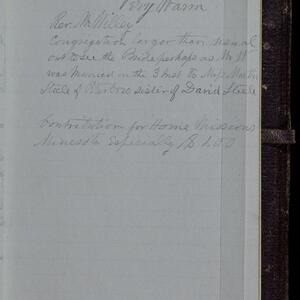 Very Warm
Rev. Mr Willey
Congregation larger than usual
out to see the Bride perhaps as Mr W
was married on the 3 inst to Miss
Steele of sister of David Steele
Contribution for Home Missions
Minesota Especially $1.00